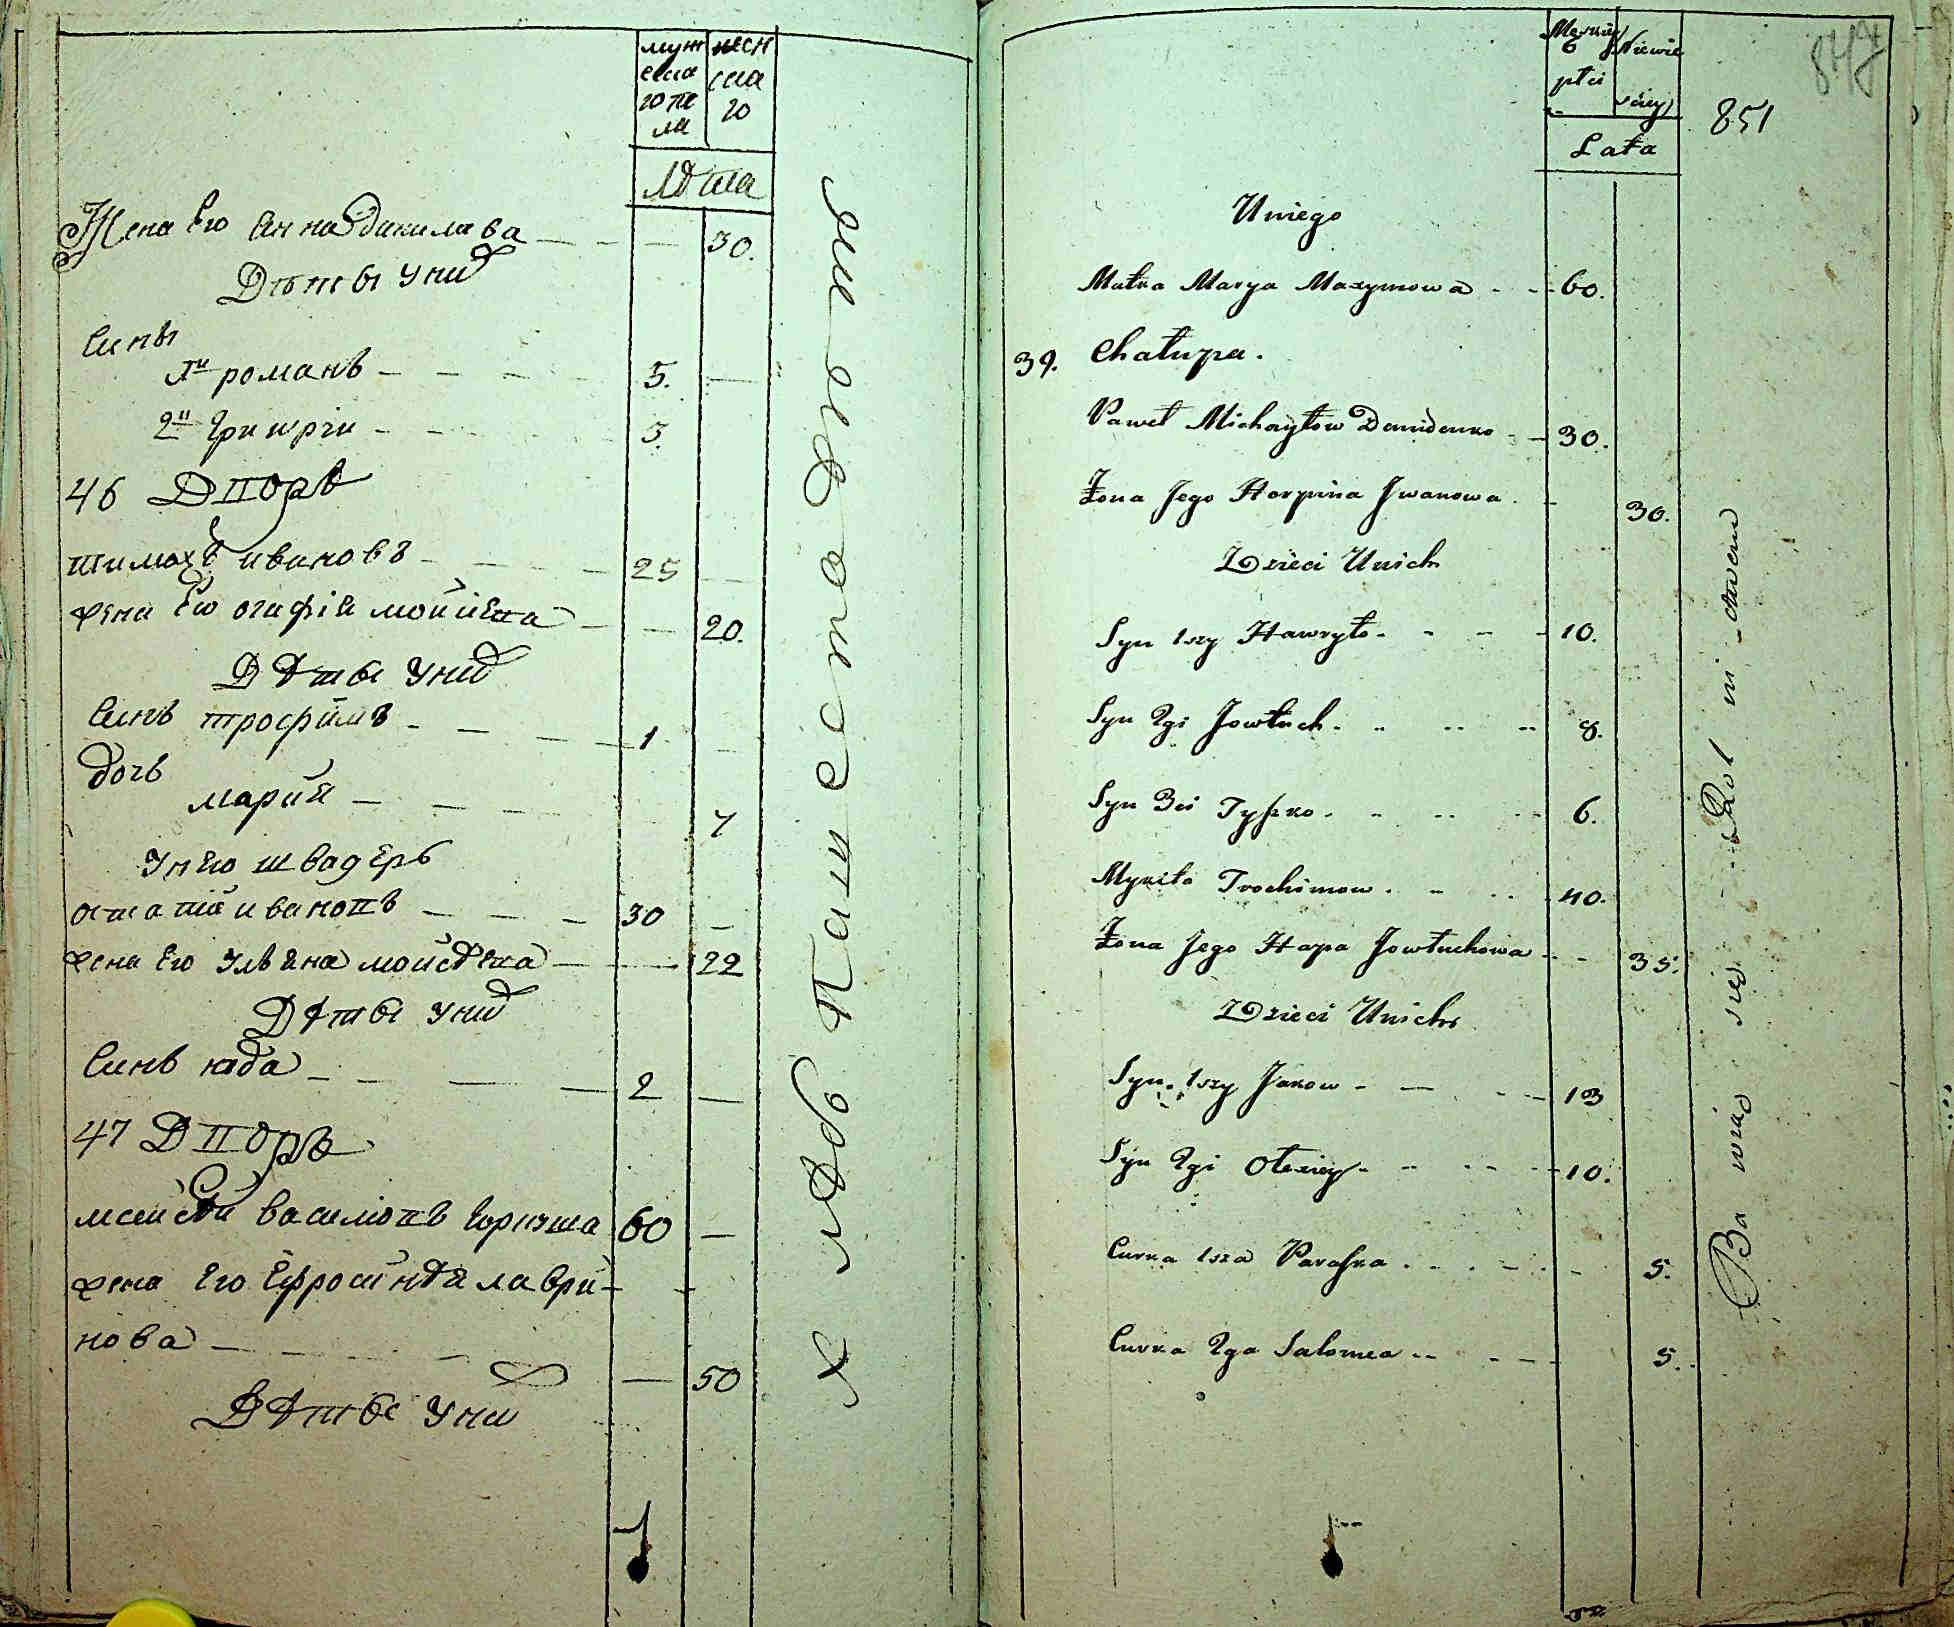 муж
еска
го по
ла
женс
ска
го
Лѣта
Жена Его Анна данилава 30.
Дѣты Уних
Сины
1й романъ 5.
2й Григрги 3.
46 Дворъ
тимохъ ивановъ 25
жена Его огафія мойсеева 20.
Дѣты Уних
Синъ трофимъ 1
дочь
мария 7
Унего швадеръ
остапій ивановъ 30
жена Его Ульяна мойсѣева 22
Дѣты Уних
Синъ юда 2
47 Дворъ
мойсѣй василіовъ 60
жена Его Ефросинѣя лаври-
нова 50
Дѣты Уних
847
851
Męzkiey
płci
Niewie
sciey
Lata
Uniego
Matka Marya Maxymowa 60.
39. Chałupa.
Paweł Michayłow Demidenko 30.
Żona Jego Horpina Jwanowa 30.
Dzieci Unich
Syn 1szy Hawryło 10.
Syn 2gi Jowtuch 8.
Syn 3ci Tyszko 6.
Mykita Trochimow 40.
Żona Jego Hapa Jowtuchowa 35.
Dzieci Unich
Syn 1szy Jakow 13
Syn 2gi Ołexiey 10.
Curka 1sza Paraska 5.
Curka 2ga Salomea 5.